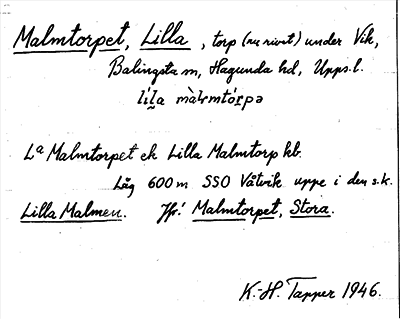 Malmtorpet, Lilla, torp (nu rivet) under Vik,
Balingsta sn, Hagunda hd, Upps.l.
li´l̥a màlmtó́rpə
La Malmtorpet ek Lilla Malmtorp kb.
Låg 600 m SSO Våtvik uppe i den s.k.
Lilla Malmen. Jfr! Malmtorpet, Stora.
K.-H. Tapper 1946.